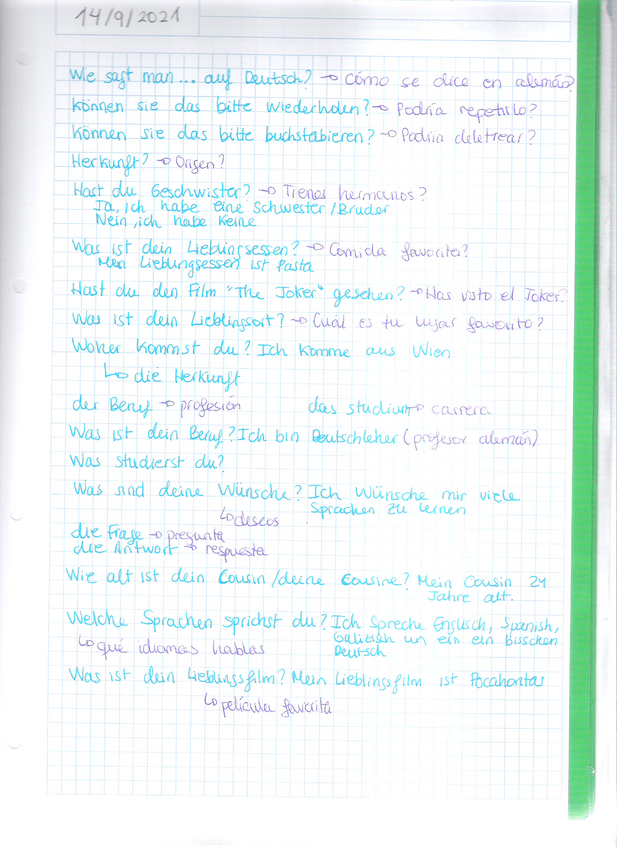 14/9/2021
Wie sagt man... auf Deutsch? → Cómo se dice en alemán?
Können sie das bitte wiederholen? → Podría repetirlo?
Können sie das bitte buchstabieren? → Podría deletrear?
Herkunft? → Origen?
Hast du Geschwister? → Tienes hermanos?
Ja, ich habe eine Schwester/Bruder
Nein, ich habe keine
Was ist dein Lieblingsessen? → Comida favorita?
Mein Lieblingsessen ist Pasta
Hast du den Film "The Joker" gesehen? → Has visto el Joker?
Was ist dein Lieblingsort? → Cuál es tu lugar favorito?
Woher kommst du? Ich komme aus Wien
↳ die Herkunft
der Beruf → profesión das studium → carrera
Was ist dein Beruf? Ich bin Deutschleher (profesor alemán)
Was studierst du?
Was sind deine Wünsche? Ich Wünsche mir viele
Sprachen zu lernen
↳ deseos
die Frage → pregunta
die Antwort → respuesta
Wie alt ist dein Cousin/deine Cousine? Mein Cousin 24
Jahre alt.
Welche Sprachen sprichst du? Ich Spreche Englisch, Spanish,
Galizisch un ein ein bisschen
Deutsch
↳ qué idiomas hablas
Was ist dein Lieblingsfilm? Mein Lieblingsfilm ist Pocahontas
↳ película favorita